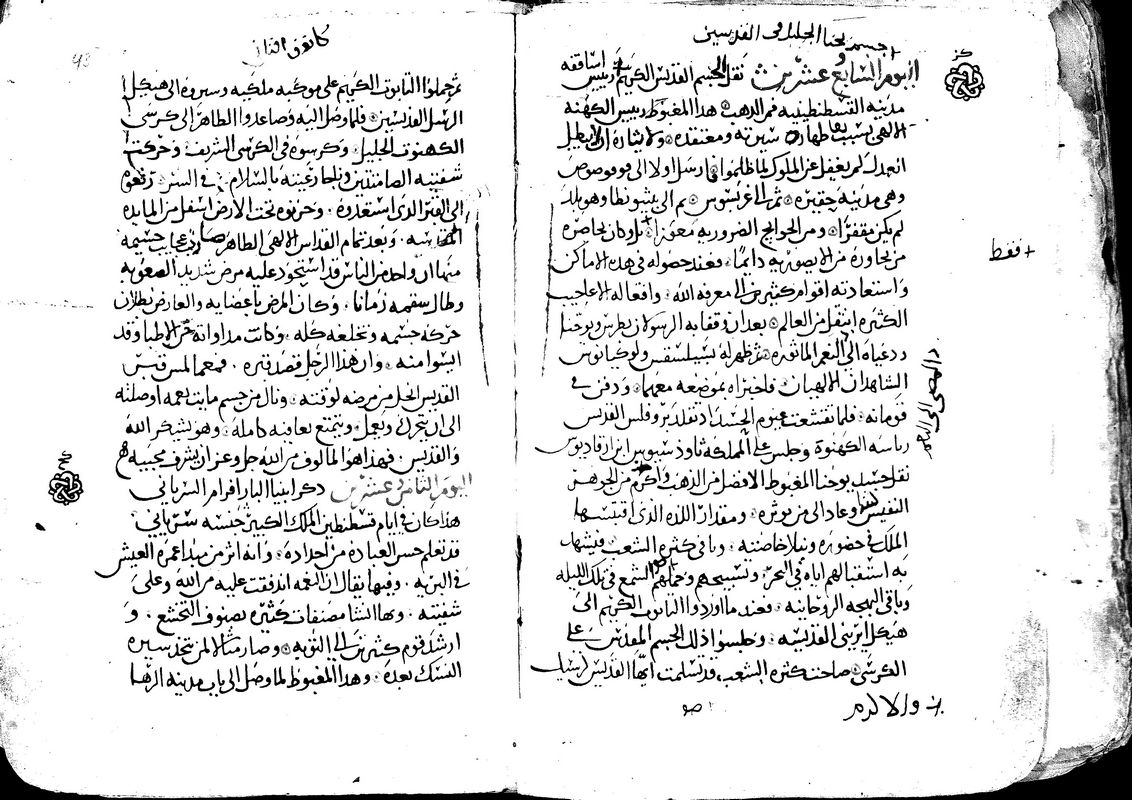 جسم يحنا الجليل في القديسين
كز
اليوم السابع عشرين نقل الجسم القديس الكريم رييس اساقفه
مدينه القسطنطينيه فم الدهب هدا المغبوط رييس الكهنه
الالهي بسبب طهارة سيرته ومعتقده ولايثاره ان لا يبطل
العدل لم يغفل عن الملوك لما ظلموا فارسل اولا الى قوقوصوص
وهي مدينه حقيره ثم الى عربسوس ثم الى بيثيونطا وهو بلد
لم يكن مقفرا ومن الحوايج الضروريه معوزا بل وكان يحاصره
من يجاوره من الايصوريه دايما فعند حصوله في هده الاماكن
واستعادته اقوام كثيرين الى معرفه الله وافعاله الاعاجيب
الكثيره انتقل من العالم بعد ان وقفا به الرسولان بطرس ويوحنا
ودعياه الى النعم الماثوره ثم ظهر له بسيلسقس ولوكيانوس
الشاهدان الالهيان فاخبراه بموضعه معهما ودفن في
قومانه فلما تقشعت غيوم الحسد اد تقلد بروقلس القديس
رياسه الكهنوة وجلس على المملكه ثاودسيوس ابن ارقاديوس
نقل جسد يوحنا المغبوط الافضل من الدهب واكرم من الجوهر
النفيس وعاد الى من يوثره ومقدار اللده الدي اقتبسها
الملك في حضوره ونبلا خاصته وباقي كثرة الشعب فيشهد
به استقبالهم اياه في البحر وتسبيحهم وحملهم الشمع في تلك الليله
وباقي البهجه الروحانيه فعند ما اوردوا التابوت الكريم الى
هيكل ايريني القديسه وجلسوا دلك الجسم المقدس على
الكرسي صاحت كثرة الشعب قد تسلمت ايها القديس كرسيك
+ فقط
كانون الثاني
43
ثم حملوا التابوت الكريم على موكبه ملكيه وسيروه الى هيكل
الرسل القديسين فلما وصل اليه وصاعدوا الطاهر الى كرسي
الكهنوت الجليل وكرسوه في الكرسي الشريف وحركت
شفتيه الصامتتين ونلجا رغيته بالسلام في السر رفعوه
الى القبر الدي استعدوه وخزنوه تحت الارض اسفل من المايده
المقدسه وبعد تمام القداس الالهي الطاهر صارت عجايب جسيمه
منها ان واحد من الناس قد استحود عليه مرض شديد الصعوبه
وطال سقمه زمانا وكان المرض باعضايه والعارض بطلان
حركة جسمه وتخلعه كله وكانت مداواته من الاطبا وقد
ايسوا منه وان هدا الرجل قصد قبره فمع ما لمس قبر
القديس انحل من مرضه لوقته ونال من جسم مايت نعمه اوصلته
الى ان يتحرك ويعمل ويتمتع بعافيه كامله وهو يشكر الله
والقديس فهدا هو المالوف من الله جل وعز ان يشرف محبيه
كح
اليوم الثامن عشرين دكر ابينا البار افرام السرياني
هدا كان في ايام قسطنطين الملك الكبير جنسه سرياني
قد تعلم حسن العباده من اجداده وانه اثر من مبدا عمره العيش
في البريه وفيها يقال ان النعمه اندفقت عليه من الله وعلى
شفتيه وبها انشا مصنفات كثيره بصنوف التخشع و
ارشد قوم كثيرين الى التوبه وصار مثالا لمن يتخد سيره
النسك بعده وهدا المغبوط لما وصل الى باب مدينه الرها